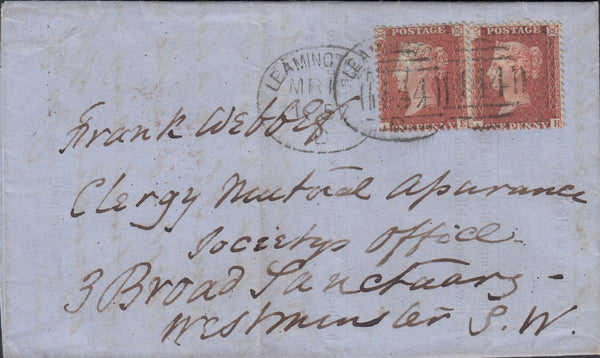 POSTAGE POSTAGE
LEAMINGTO
MR
ONE PENNY ONE PENNY
Frank Webb Esq
Clergy Mutual Assurance
Societys Office.
3 Broad Sanctuary -
Westminster S.W.